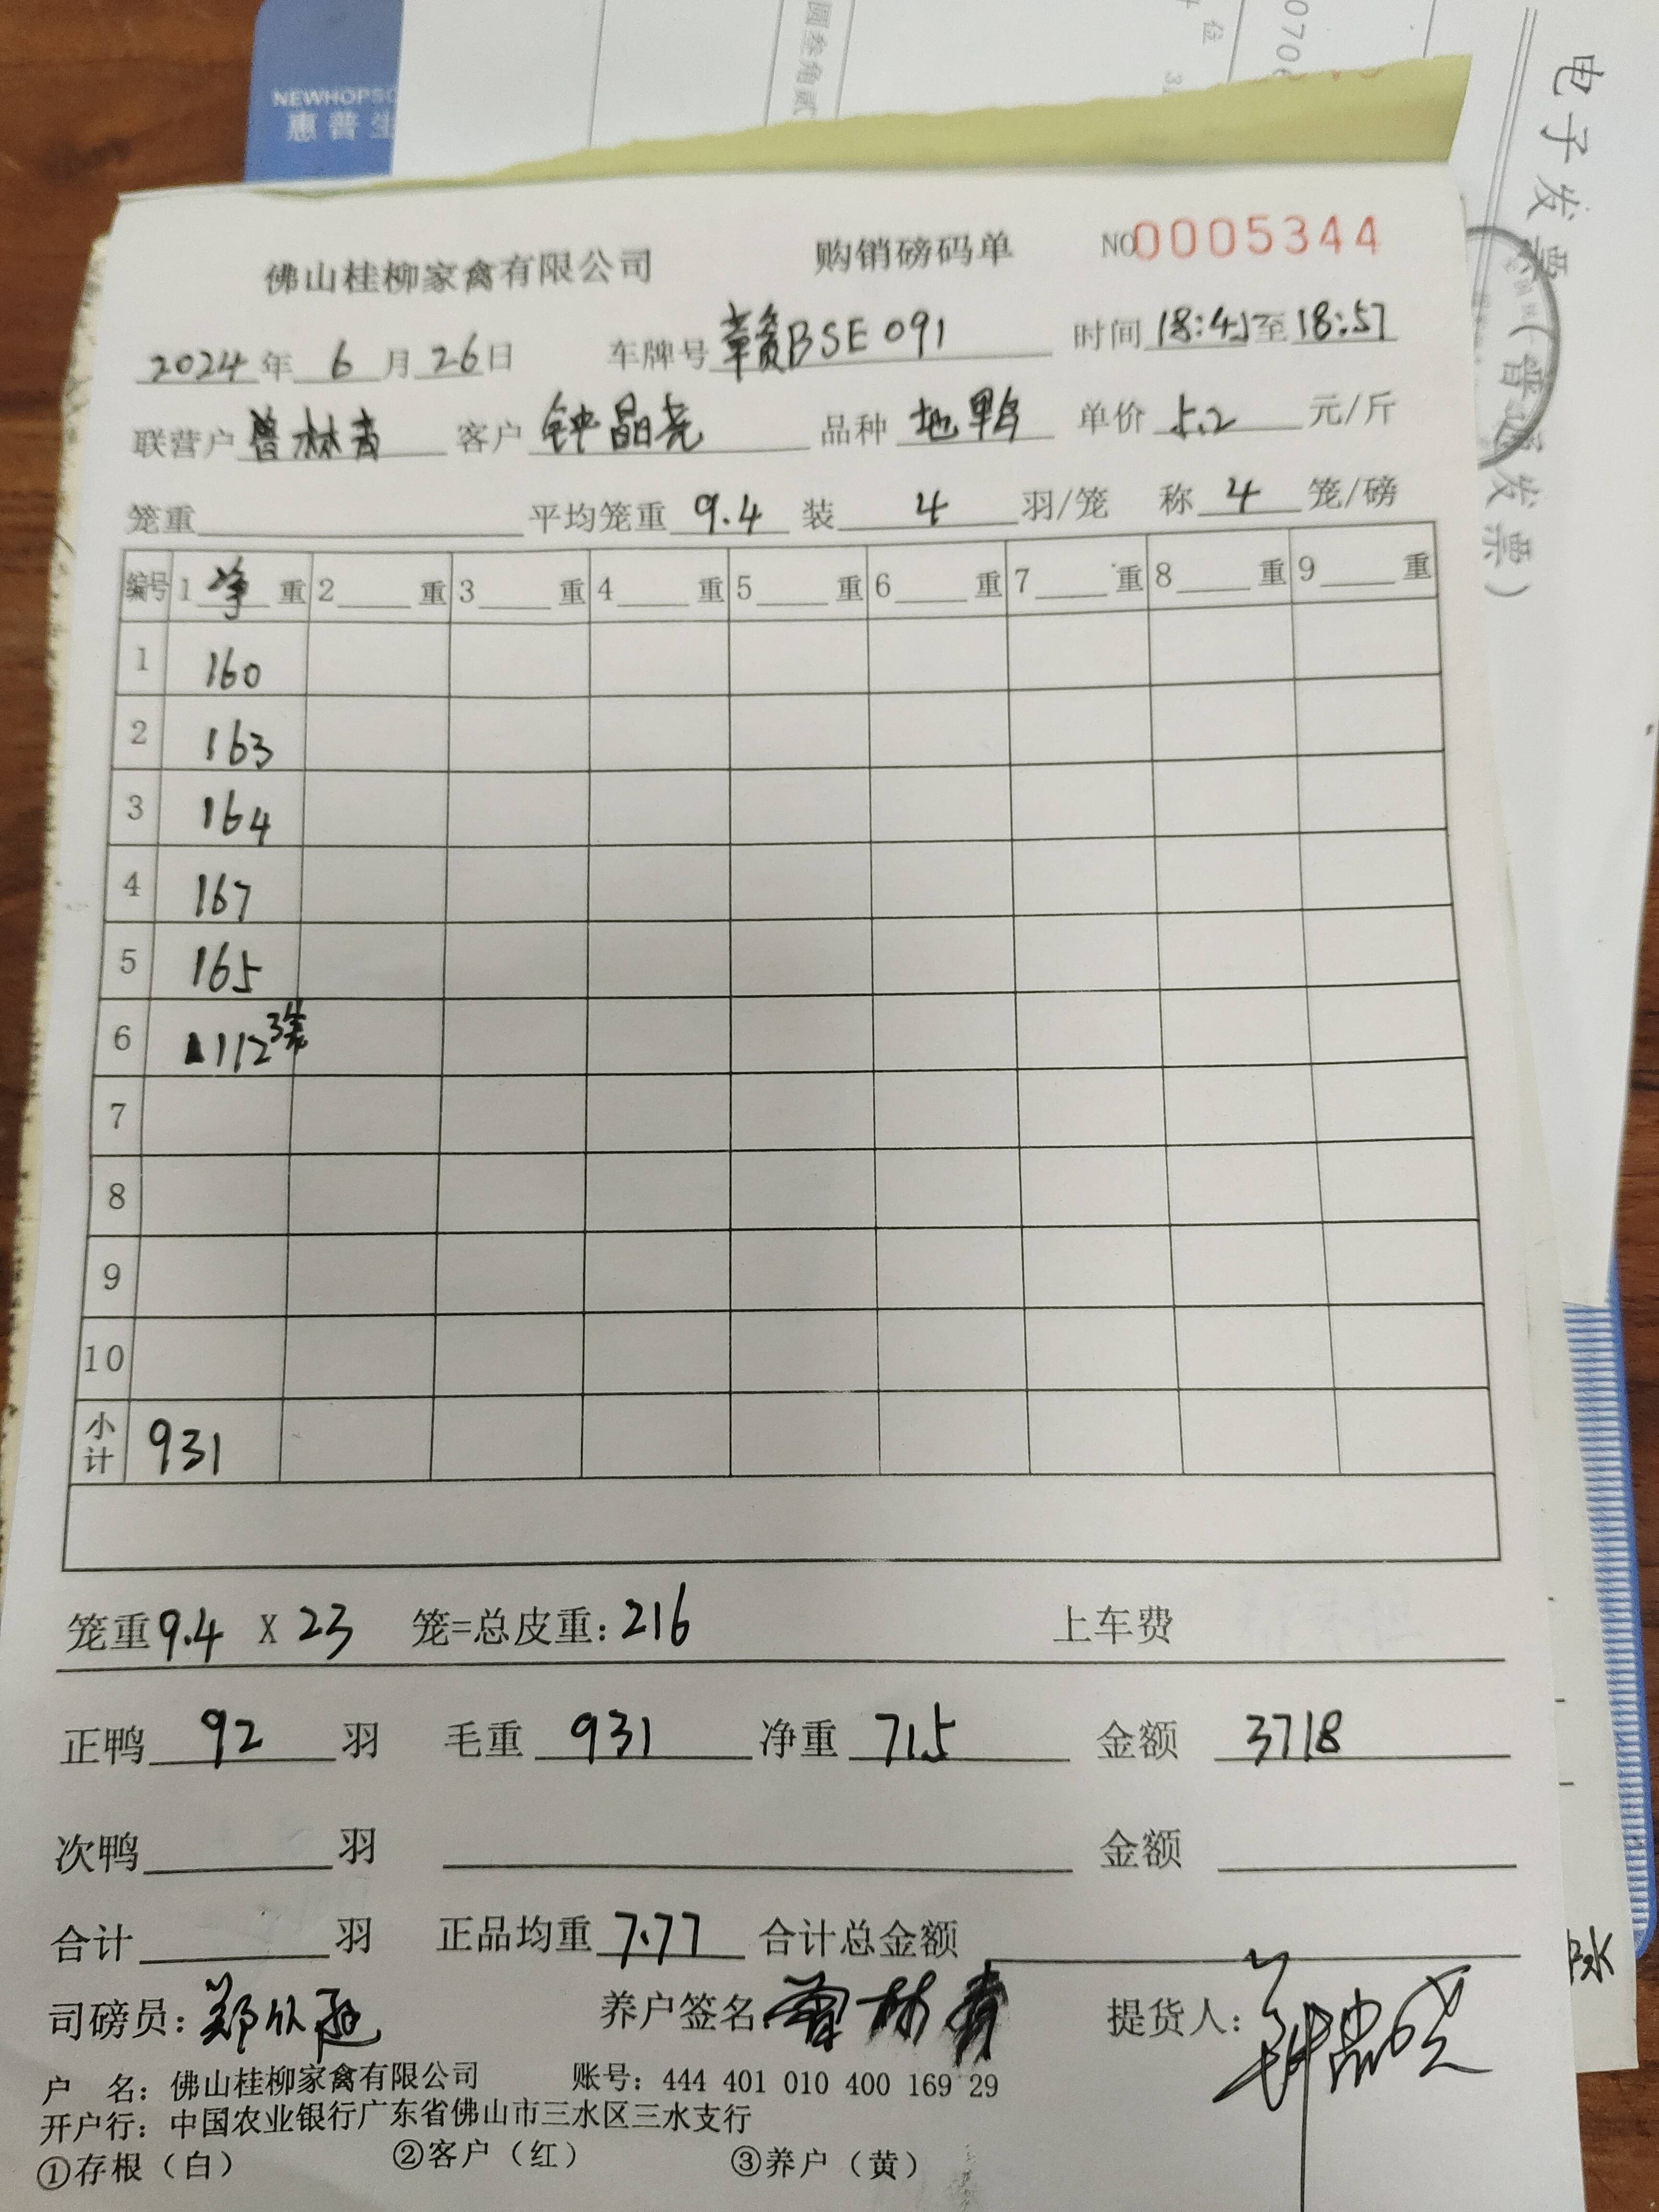 NEWHOPSO
惠普生
圆叁角贰
位
0706
电子发票
(普通发票)
佛山桂柳家禽有限公司 购销磅码单 NO0005344
2024年 6月26日 车牌号 赣BSE091 时间 18:45至18:57
联营户 曾林青 客户 钟晶亮 品种 地鸭 单价 5.2 元/斤
笼重 平均笼重 9.4 装 4 羽/笼 称 4 笼/磅
编号 1 净 重 2 重 3 重 4 重 5 重 6 重 7 重 8 重 9 重
1 160
2 163
3 164
4 167
5 165
6 112 3笼
7
8
9
10
小计 931
笼重9.4 X 23 笼=总皮重:216 上车费
正鸭 92 羽 毛重 931 净重 715 金额 3718
次鸭 羽 金额
合计 羽 正品均重 7.77 合计总金额
司磅员: 养户签名: 曾林青 提货人:
户 名: 佛山桂柳家禽有限公司 账号: 444 401 010 400 169 29
开户行: 中国农业银行广东省佛山市三水区三水支行
①存根(白) ②客户(红) ③养户(黄)